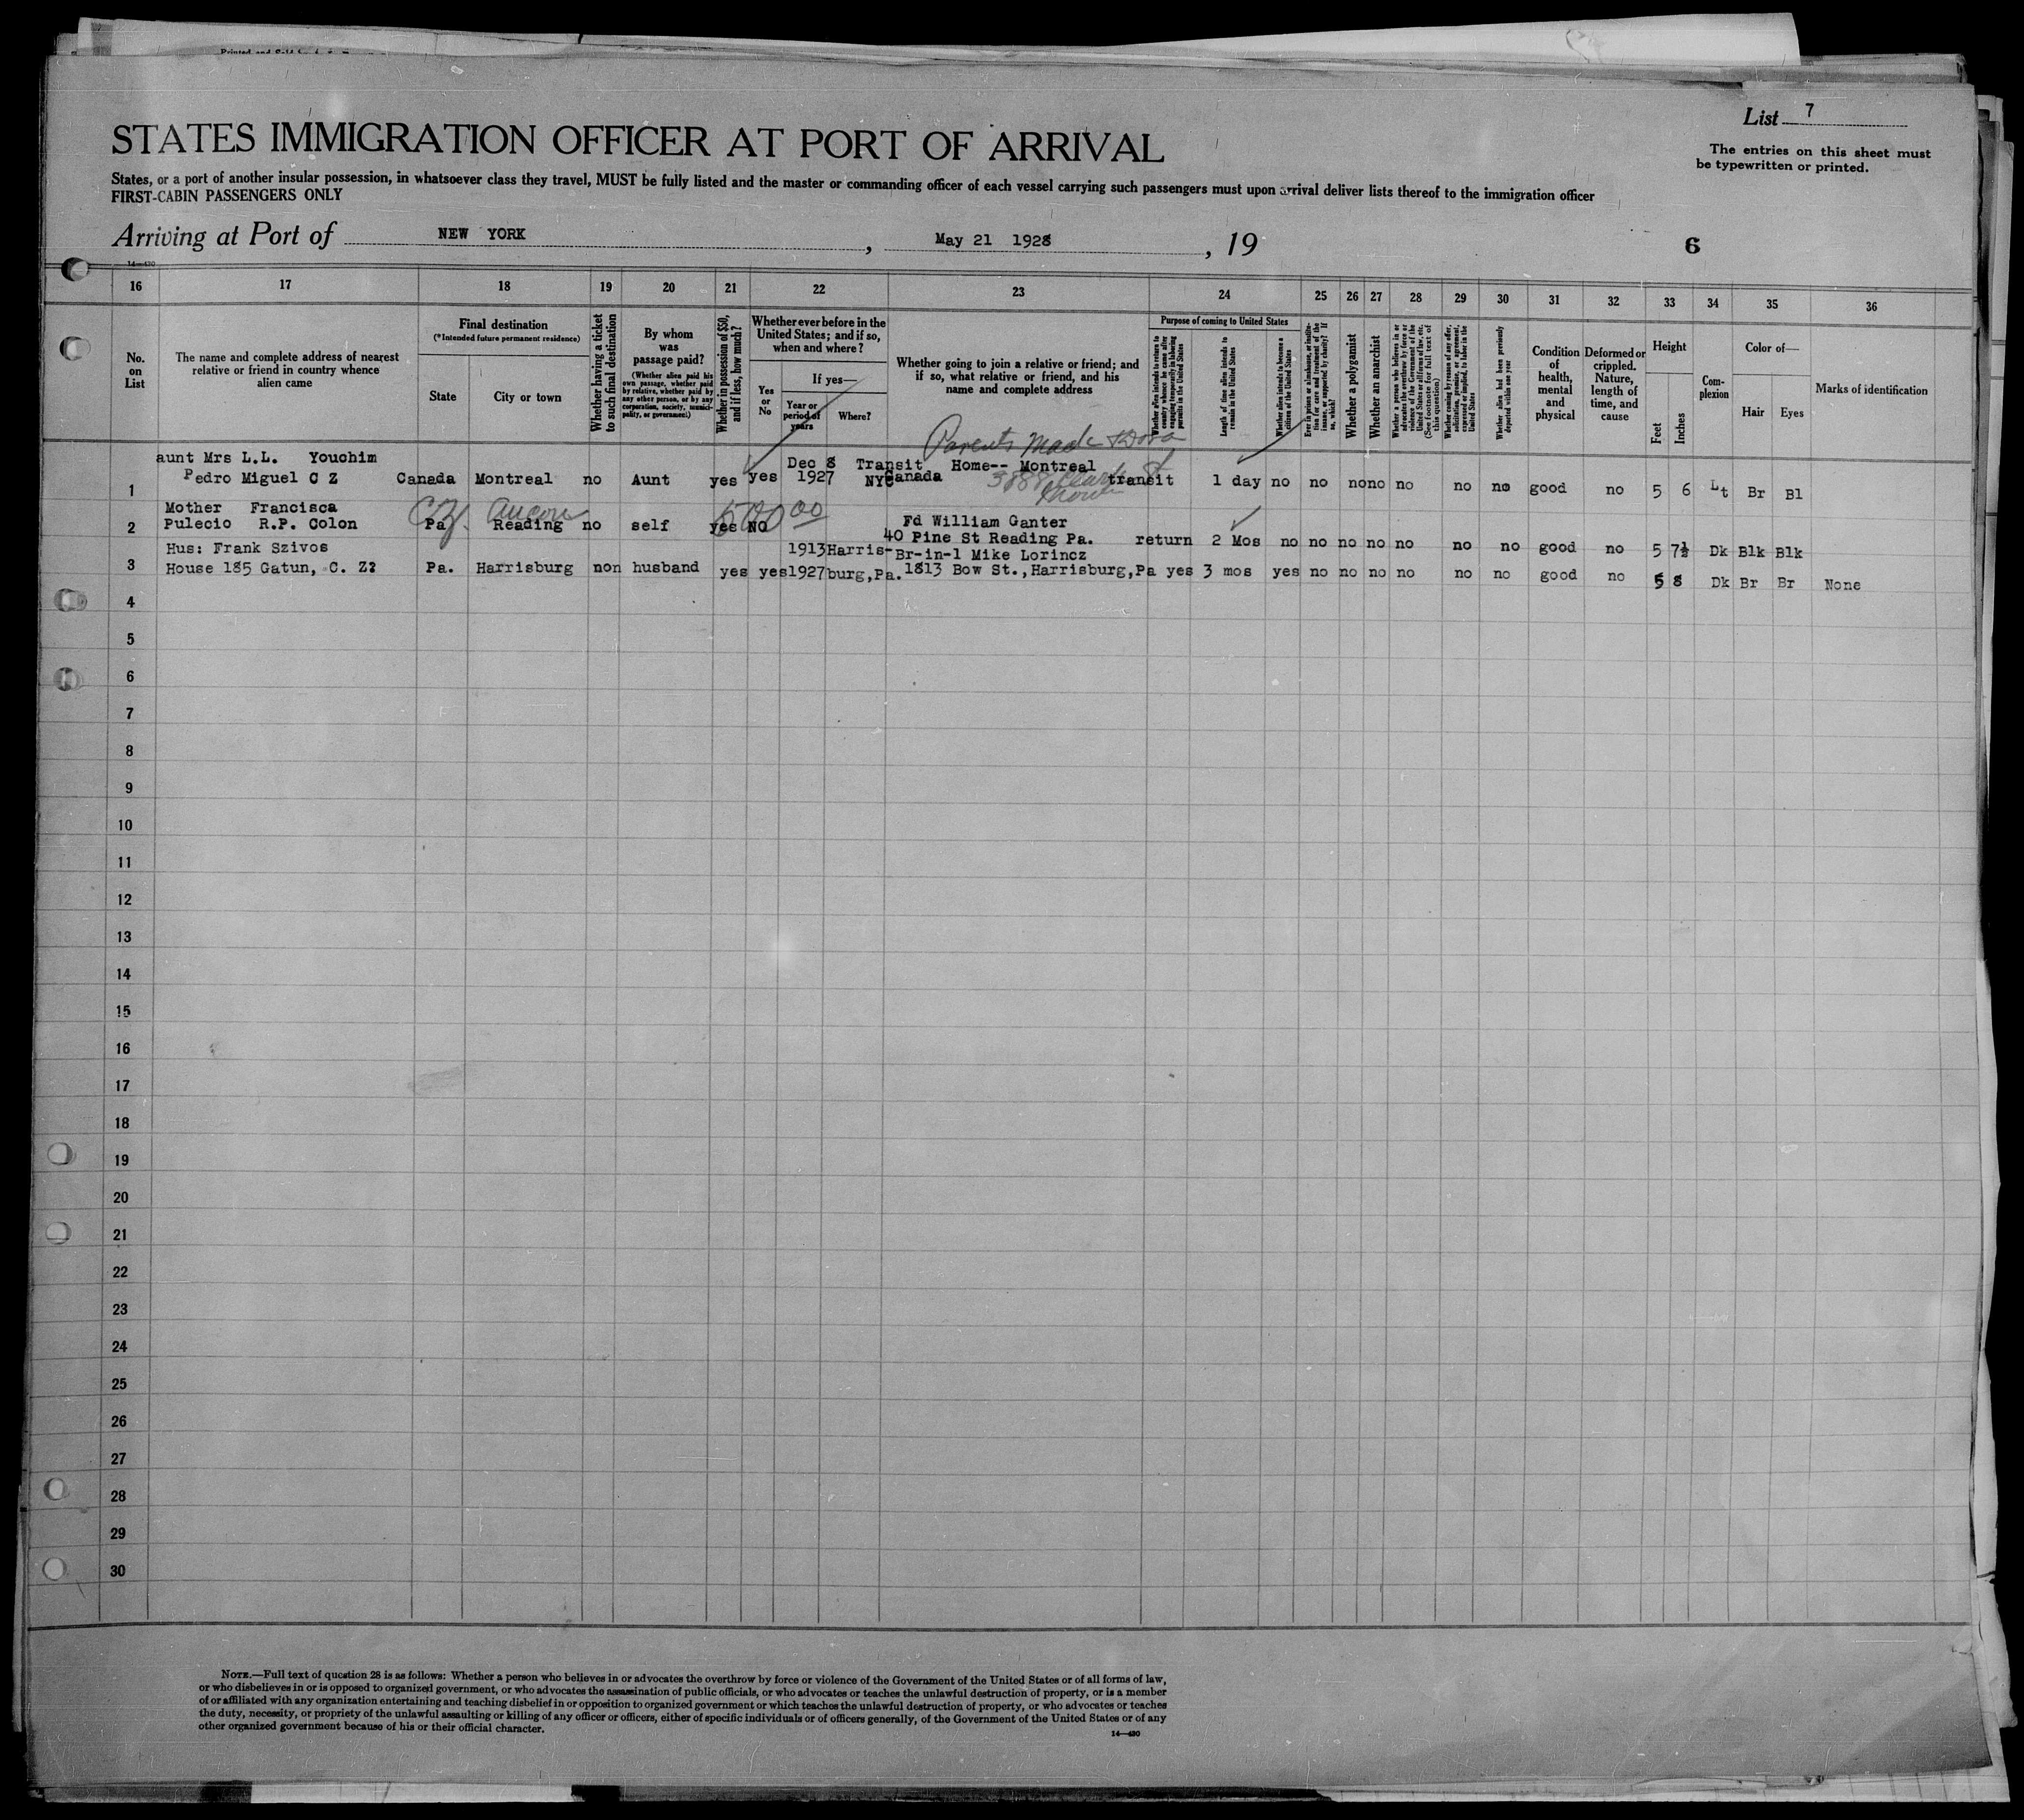 List 7
STATES IMMIGRATION OFFICER AT PORT OF ARRIVAL
The entries on this sheet must
be typewritten or printed.
States, or a port of another insular possession, in whatsoever class they travel, MUST be fully listed and the master or commanding officer of each vessel carrying such passengers must upon arrival deliver lists thereof to the immigration officer
FIRST-CABIN PASSENGERS ONLY
Arriving at Port of NEW YORK, May 21 1928, 19
6
14—430
16 17 18 19 20 21 22 23 24 25 26 27 28 29 30 31 32 33 34 35 36
No.
on
List
The name and complete address of nearest
relative or friend in country whence
alien came
Final destination
(*Intended future permanent residence)
State
City or town
Whether having a ticket
to such final destination
By whom
was
passage paid?
(Whether alien paid his
own passage, whether paid
by relative, whether paid by
any other person, or by any
corporation, society, munici-
pality, or government)
Whether in possession of $50,
and if less, how much?
Whether ever before in the
United States; and if so,
when and where?
Yes
or
No
If yes—
Year or
period of
years
Where?
Whether going to join a relative or friend; and
if so, what relative or friend, and his
name and complete address
Purpose of coming to United States
Whether alien intends to return to
country whence he came after
engaging temporarily in laboring
pursuits in the United States
Length of time alien intends to
remain in the United States
Whether alien intends to become a
citizen of the United States
Ever in prison or almshouse, or institu-
tion for care and treatment of the
insane, or supported by charity? If
so, which?
Whether a polygamist
Whether an anarchist
Whether a person who believes in or
advocates the overthrow by force or
violence of the Government of the
United States or all forms of law, etc.
(See footnote for full text of
this question)
Whether coming by reason of any offer,
solicitation, promise, or agreement,
expressed or implied, to labor in the
United States
Whether alien had been previously
deported within one year
Condition
of
health,
mental
and
physical
Deformed or
crippled.
Nature,
length of
time, and
cause
Height
Feet
Inches
Com-
plexion
Color of—
Hair
Eyes
Marks of identification
Parents Made
aunt Mrs L.L. Youchim Dec 8 Transit Home-- Montreal
1 Pedro Miguel C Z Canada Montreal no Aunt yes yes 1927 NYC Canada 3888 transit 1 day no no no no no no no good no 5 6 Lt Br Bl
Mother Francisca CZ. Ancon 500 00 Fd William Ganter
2 Pulecio R.P. Colon Pa Reading no self yes NO 40 Pine St Reading Pa. return 2 Mos no no no no no no no good no 5 7½ Dk Blk Blk
Hus: Frank Szivos 1913 Harris- Br-in-l Mike Lorincz
3 House 185 Gatun, C. Z? Pa. Harrisburg non husband yes yes 1927 burg,Pa. 1813 Bow St.,Harrisburg,Pa yes 3 mos yes no no no no no no good no 5 8 Dk Br Br None
4
5
6
7
8
9
10
11
12
13
14
15
16
17
18
19
20
21
22
23
24
25
26
27
28
29
30
NOTE.—Full text of question 28 is as follows: Whether a person who believes in or advocates the overthrow by force or violence of the Government of the United States or of all forms of law,
or who disbelieves in or is opposed to organized government, or who advocates the assassination of public officials, or who advocates or teaches the unlawful destruction of property, or is a member
of or affiliated with any organization entertaining and teaching disbelief in or opposition to organized government or which teaches the unlawful destruction of property, or who advocates or teaches
the duty, necessity, or propriety of the unlawful assaulting or killing of any officer or officers, either of specific individuals or of officers generally, of the Government of the United States or of any
other organized government because of his or their official character.
14—430